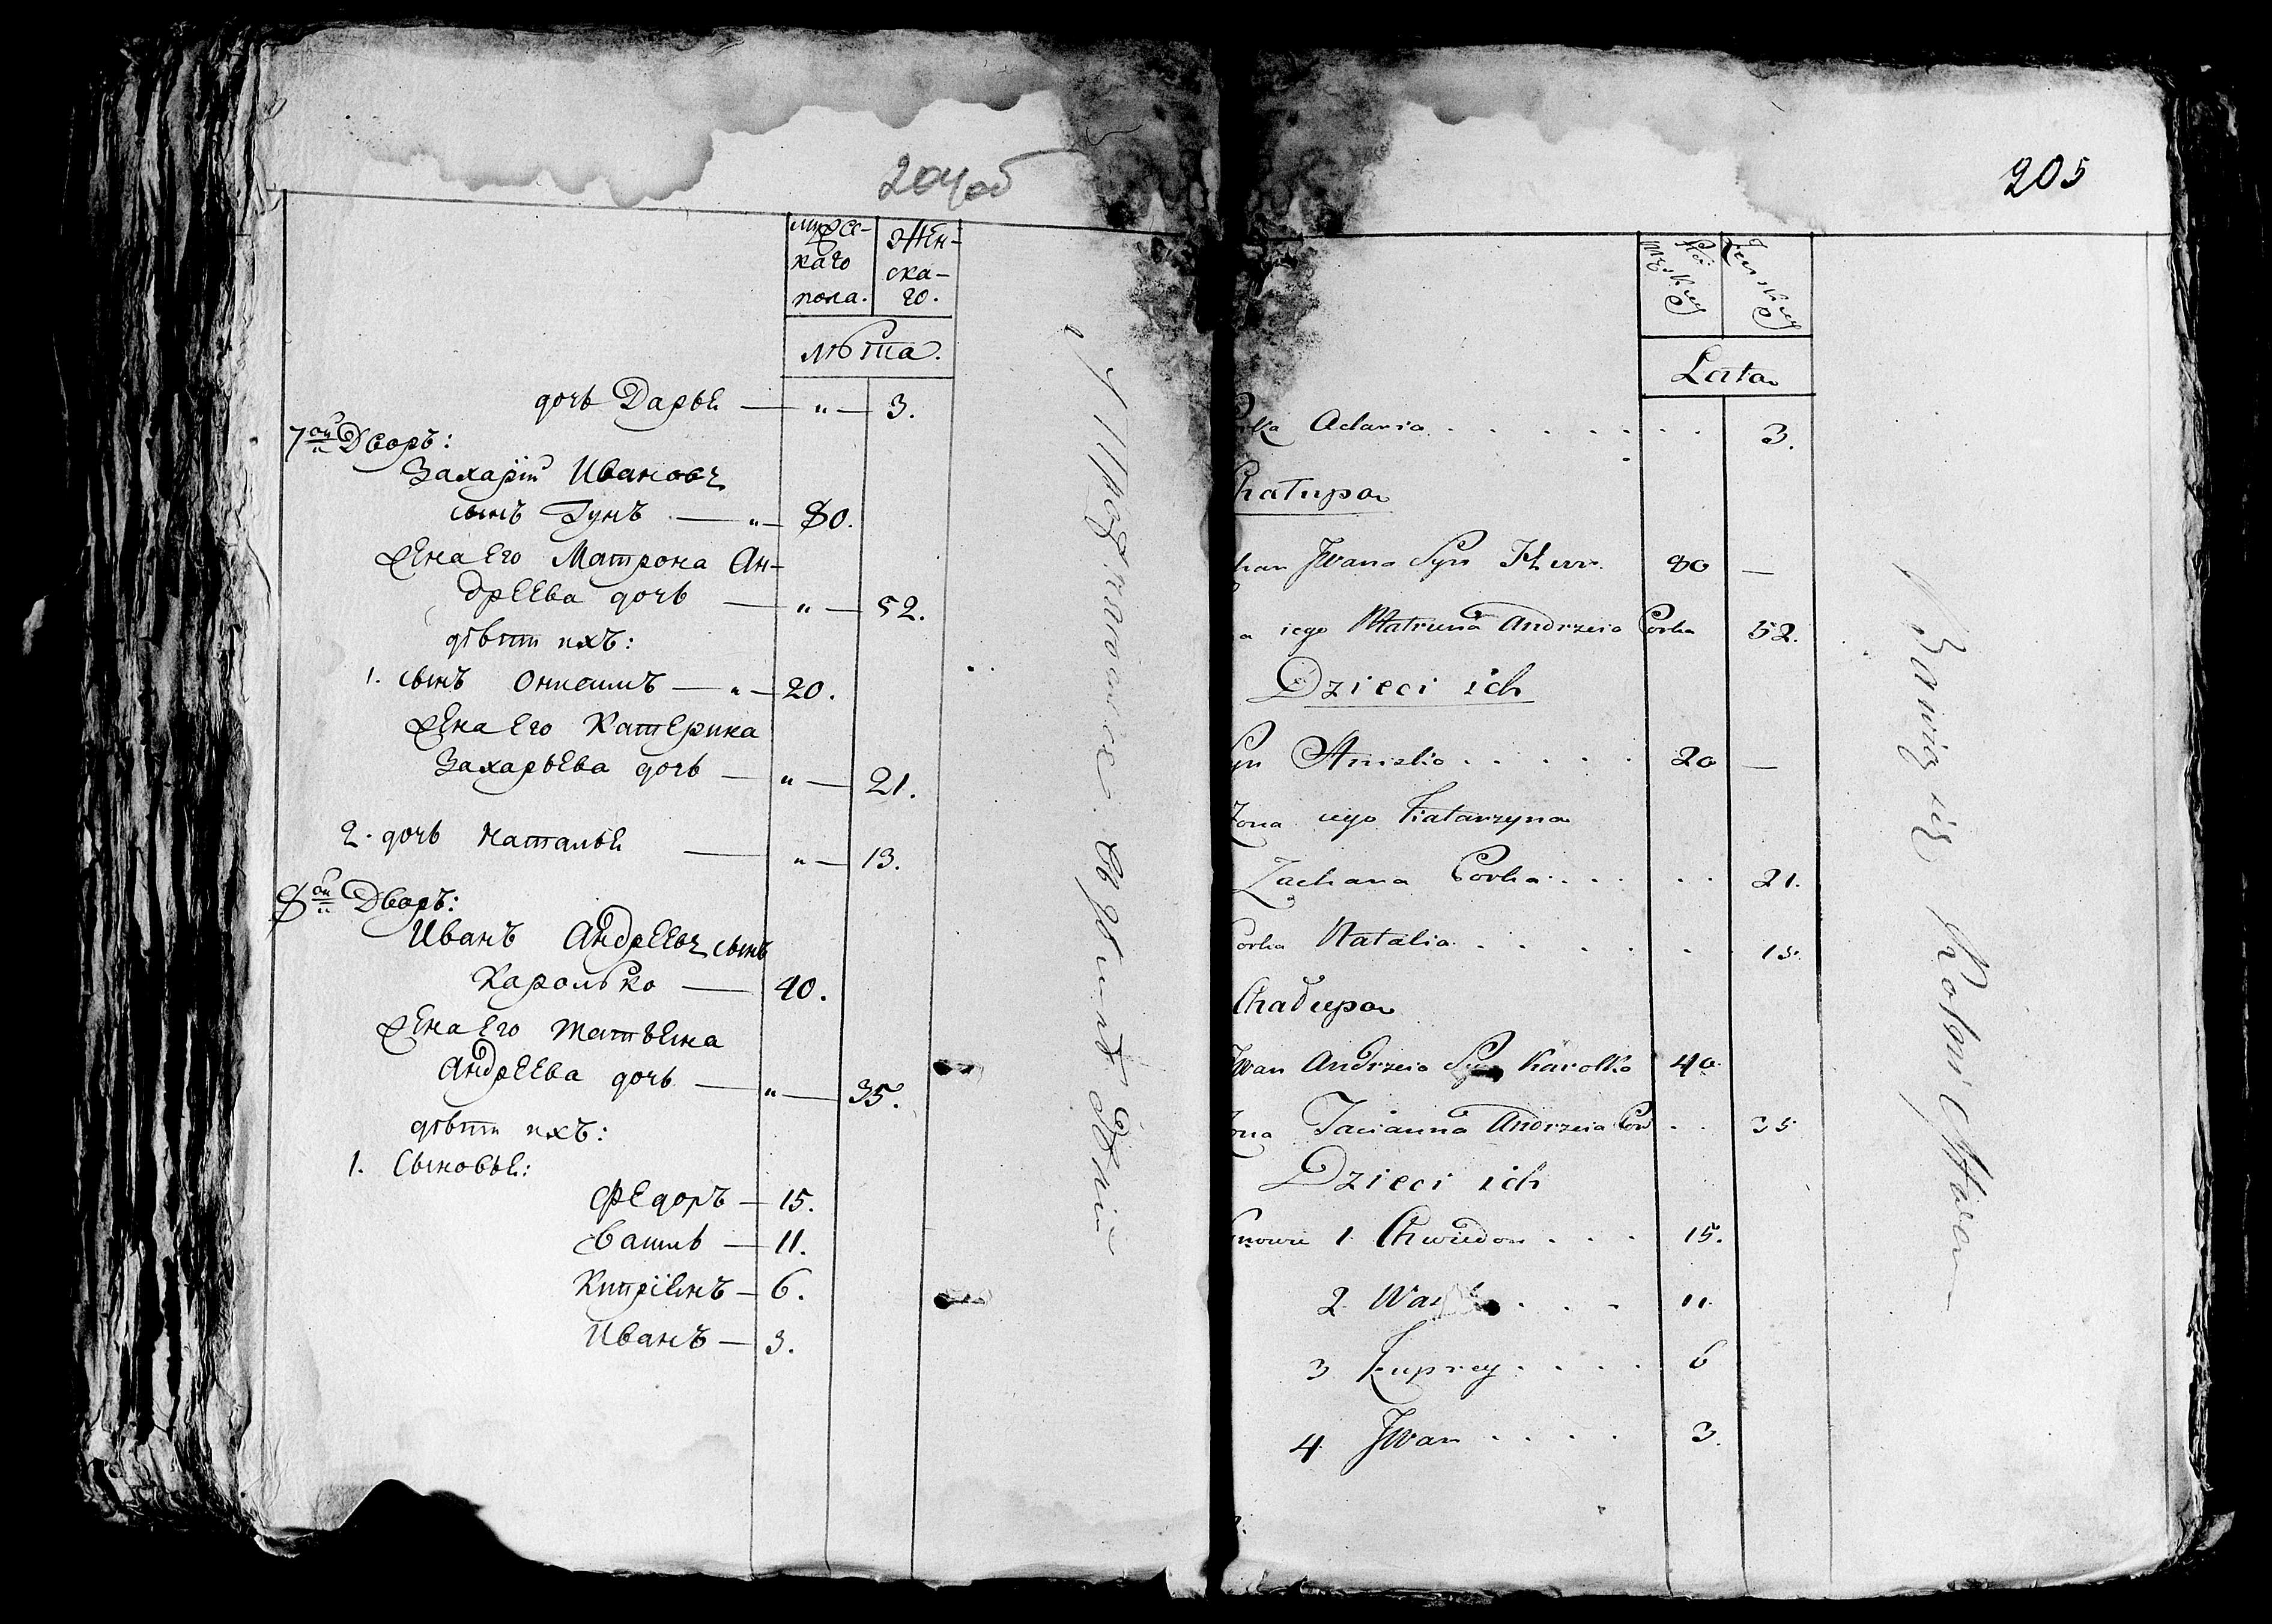 204 об
мужес-
каго
пола.
жен-
ска-
го.
лѣта.
дочь Дарья — " — 3.
7ой Дворъ:
Захарій Ивановъ
сынъ Гунъ — " — 80.
жена его Матрона Ан-
дреева дочь — " — 52.
дѣти ихъ:
1. сынъ Онисимъ — " — 20.
жена его Катерина
Захарьева дочь — " — 21.
2. дочь Наталья — " — 13.
8ой Дворъ:
Иванъ Андреевъ сынъ
Каролько — 40.
жена его Татьяна
Андреева дочь — " — 35.
дѣти ихъ:
1. Сыновья:
Федоръ — 15.
Василь — 11.
Кипріянъ — 6.
Иванъ — 3.
205
Męzkiey
Żenskiey
Lata
Adaria . . . . . . . 3.
Chałupa
Jwana Syn 80 —
iego Matruna Andrzeia Corka 52.
Dzieci ich
Syn 20 —
Żona iego Katarzyna
Zachara Corka . . . . . 21.
Corka Natalia . . . . . . 13.
Chałupa
Jwan Andrzeia Syn Karolko 40
Żona Tacianna Andrzeia Cor . . 35
Dzieci ich
Synowie 1. Chwiedor . . . 15.
2. . . . 11.
3 Kuprey . . . . 6
4. Jwan . . . . 3.